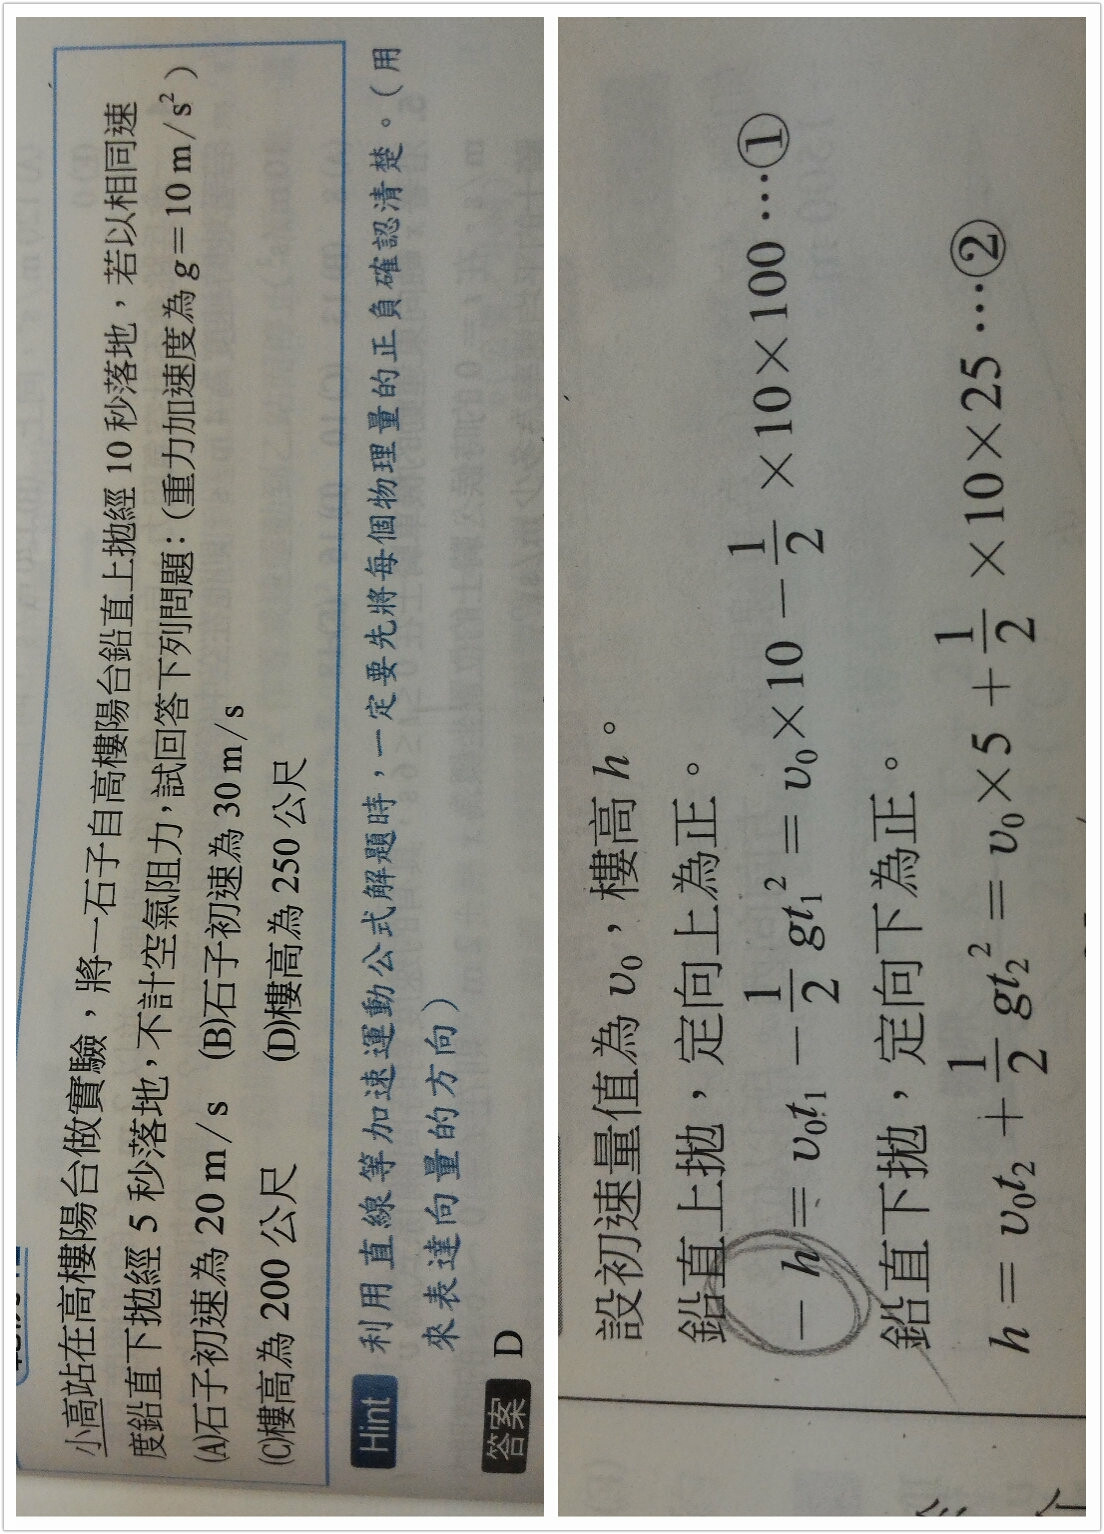 小高站在高樓陽台做實驗，將一石子自高樓陽台鉛直上拋經 10 秒落地，若以相同速
度鉛直下拋經 5 秒落地，不計空氣阻力，試回答下列問題：（重力加速度為 g＝10 m/s²）
(A)石子初速為 20 m/s (B)石子初速為 30 m/s
(C)樓高為 200 公尺 (D)樓高為 250 公尺
Hint 利用直線等加速運動公式解題時，一定要先將每個物理量的正負確認清楚。（用
來表達向量的方向）
答案 D
設初速量值為 v₀，樓高 h。
鉛直上拋，定向上為正。
－h＝v₀t₁－1/2 gt₁²＝v₀×10－1/2×10×100 …①
鉛直下拋，定向下為正。
h＝v₀t₂＋1/2 gt₂²＝v₀×5＋1/2×10×25 …②